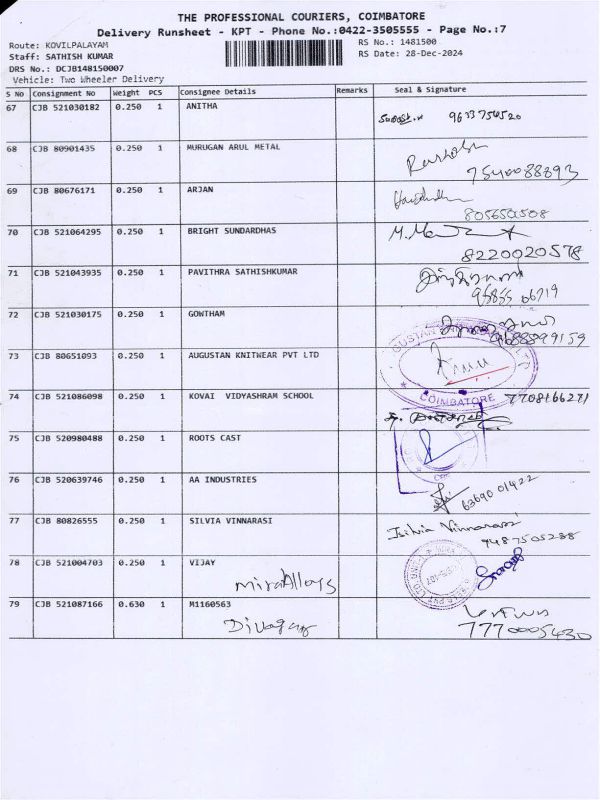 THE PROFESSIONAL COURIERS, COIMBATORE
Delivery Runsheet - KPT - Phone No.:0422-3505555 - Page No.:7
Route: KOVILPALAYAM
RS No.: 1481500
Staff: SATHISH KUMAR
RS Date: 28-Dec-2024
DRS No.: DCJB148150007
Vehicle: Two Wheeler Delivery
S No Consignment No Weight PCS Consignee Details Remarks Seal & Signature
67 CJB 521030182 0.250 1 ANITHA
9633754520
68 CJB 80901435 0.250 1 MURUGAN ARUL METAL
7540088893
69 CJB 80676171 0.250 1 ARJAN
70 CJB 521064295 0.250 1 BRIGHT SUNDARDHAS
8220020578
71 CJB 521043935 0.250 1 PAVITHRA SATHISHKUMAR
72 CJB 521030175 0.250 1 GOWTHAM
9688899159
73 CJB 80651093 0.250 1 AUGUSTAN KNITWEAR PVT LTD
COIMBATORE
74 CJB 521086098 0.250 1 KOVAI VIDYASHRAM SCHOOL 7708166271
75 CJB 520980488 0.250 1 ROOTS CAST
76 CJB 520639746 0.250 1 AA INDUSTRIES
63690 01422
77 CJB 80826555 0.250 1 SILVIA VINNARASI
9487505288
78 CJB 521004703 0.250 1 VIJAY
Mira Alloys
79 CJB 521087166 0.630 1 M1160563
Divagar
7770005430